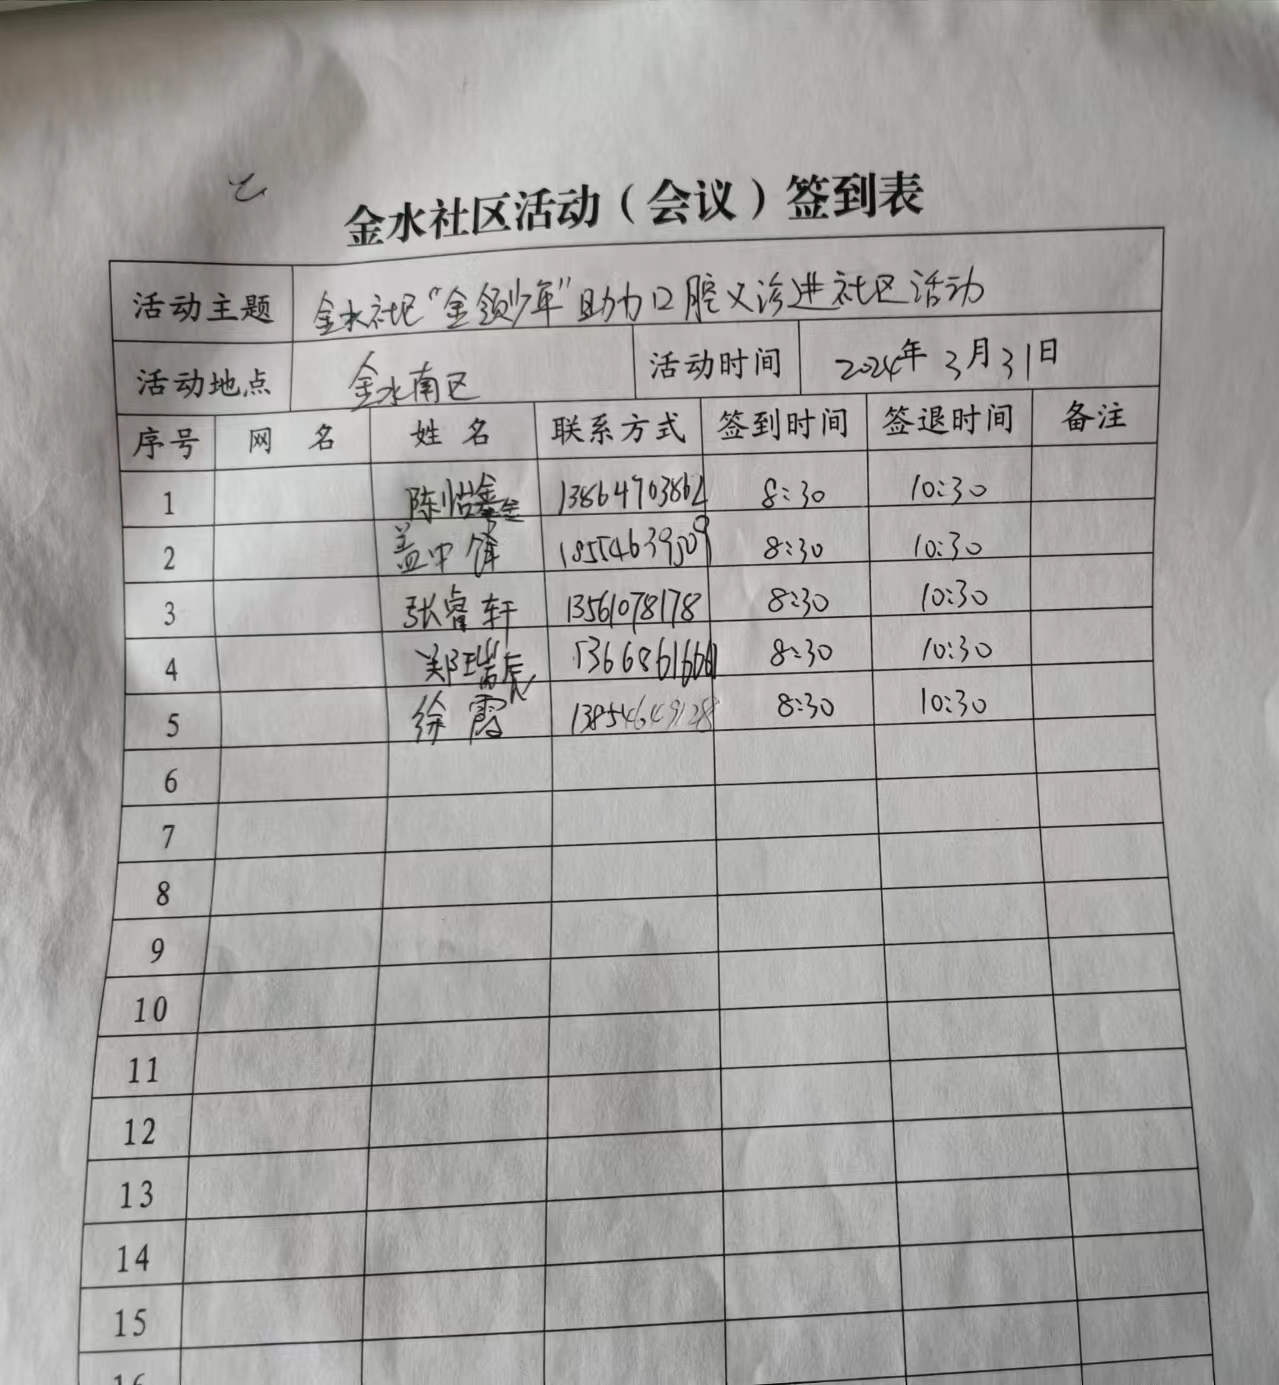 金水社区活动（会议）签到表
活动主题 金水社区“金领少年”助力口腔义诊进社区活动
活动地点 金水南区 活动时间 2024年3月31日
序号 网名 姓名 联系方式 签到时间 签退时间 备注
1 陈怡 13864703862 8:30 10:30
2 盖中锋 18554639509 8:30 10:30
3 张睿轩 13561078178 8:30 10:30
4 郑瑞辰 8:30 10:30
5 徐霞 13854649128 8:30 10:30
6
7
8
9
10
11
12
13
14
15
16